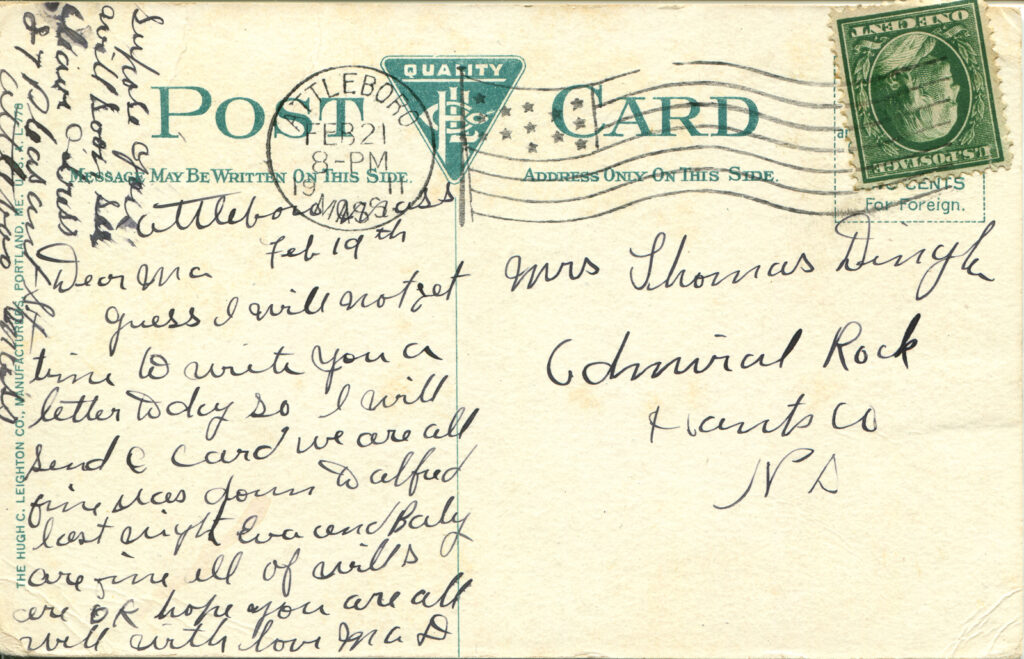 QUALITY
POST CARD
MESSAGE MAY BE WRITTEN ON THIS SIDE.
ADDRESS ONLY ON THIS SIDE.
ATTLEBORO
FEB 21
8-PM
1911
MASS.
ONE CENT
U.S. POSTAGE
CENTS
For Foreign.
THE HUGH C. LEIGHTON CO., MANUFACTURERS, PORTLAND, ME. U.S.A.
Attleboro Mass
Feb 19th
Dear Ma
guess I will not get
time to write you a
letter today so I will
send a card we are all
fine was down to alfred
last night Eva and Baby
are fine all of will's
are OK hope you are all
will with love Ma D
Supose you
will soon be
27 Pleasant St
Attleboro Mass
Mrs Thomas Dingle
Admiral Rock
Hants Co
N S